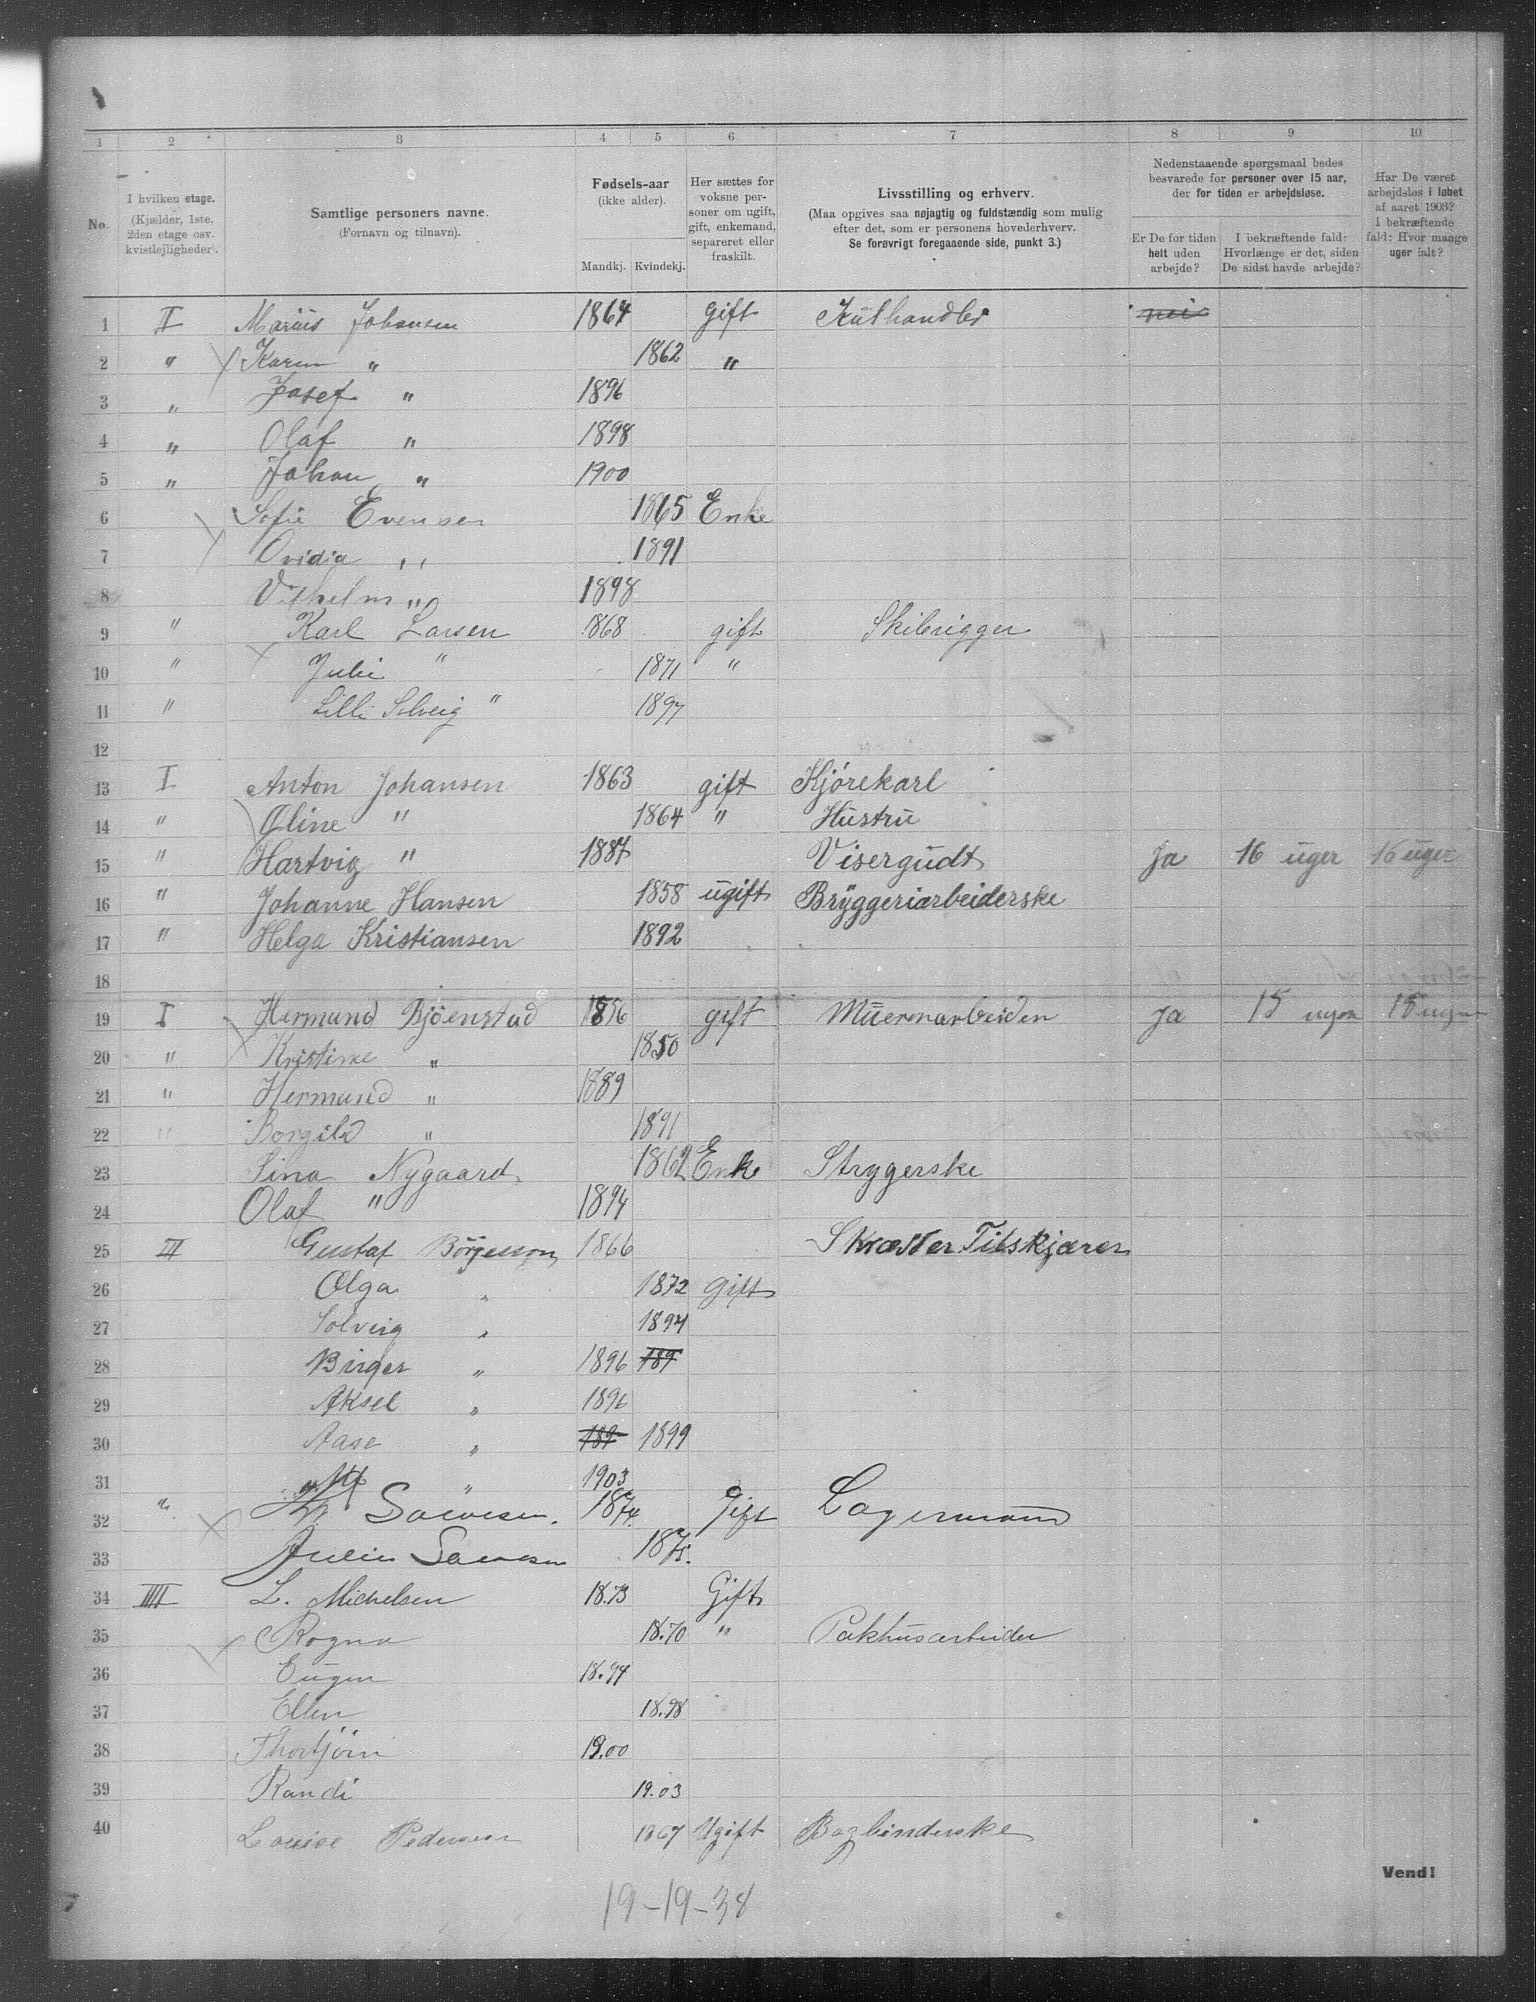 1 2 3 4 5 6 7 8 9 10
No. I hvilken etage. (Kjælder, 1ste, 2den etage osv. kvistleiligheder). Samtlige personers navne. (Fornavn og tilnavn). Fødsels-aar (ikke alder). Mandkj. Kvindekj. Her sættes for voksne personer om ugift, gift, enkemand, separeret eller fraskilt. Livsstilling og erhverv. (Maa opgives saa nøjagtig og fuldstændig som mulig efter det, som er personens hovederhverv. Se forøvrigt foregaaende side, punkt 3.) Nedenstaaende spørgsmaal bedes besvarede for personer over 15 aar, der for tiden er arbejdsløse. Er De for tiden helt uden arbejde? I bekræftende fald: Hvorlænge er det, siden De sidst havde arbejde? Har De været arbejdsløs i løbet af aaret 1903? I bekræftende fald: Hvor mange uger ialt?
1 II Marius Johansen 1864 gift Kulhandler nei
2 " Karen " 1862 "
3 " Josef " 1896
4 " Olaf " 1898
5 " Johan " 1900
6 Sofie Evensen 1865 Enke
7 Ovidia " 1891
8 Vilhelm " 1898
9 " Karl Larsen 1868 gift Skibrigger
10 " Julie " 1871 "
11 " Lilli Solveig " 1897
12
13 I Anton Johansen 1863 gift Kjørekarl
14 " Oline " 1864 " Hustru
15 " Hartvig " 1887 Visergudt Ja 16 uger 16 uger
16 " Johanne Hansen 1858 ugift Bryggeriarbeiderske
17 " Helga Kristiansen 1892
18
19 I Hermund Bjöenstad 1856 gift Muernarbeiden Ja 15 15
20 " Kristine " 1850
21 " Hermund " 1889
22 " Borgild " 1891
23 Sina Nygaard 1862 Enke Strygerske
24 Olaf " 1894
25 III Gustaf Börjesson 1866 Skrædder Tilskjærer
26 Olga " 1872 gift
27 Solveig " 1894
28 Birger " 1896 189
29 Aksel " 1896
30 Aase " 189 1899
31 " 1903
32 " 1874 Gift Lagermand
33 Julie 1875
34 IIII L. Michelsen 18.73 Gift
35 Rogna 18.70 " Pakhusarbeider
36 Eugen 18.94
37 Ellen 18.98
38 Thorbjörn 19.00
39 Randi 19.03
40 Louise Pedersen 1867 Ugift Bogbinderske
Vend!
19-19-38